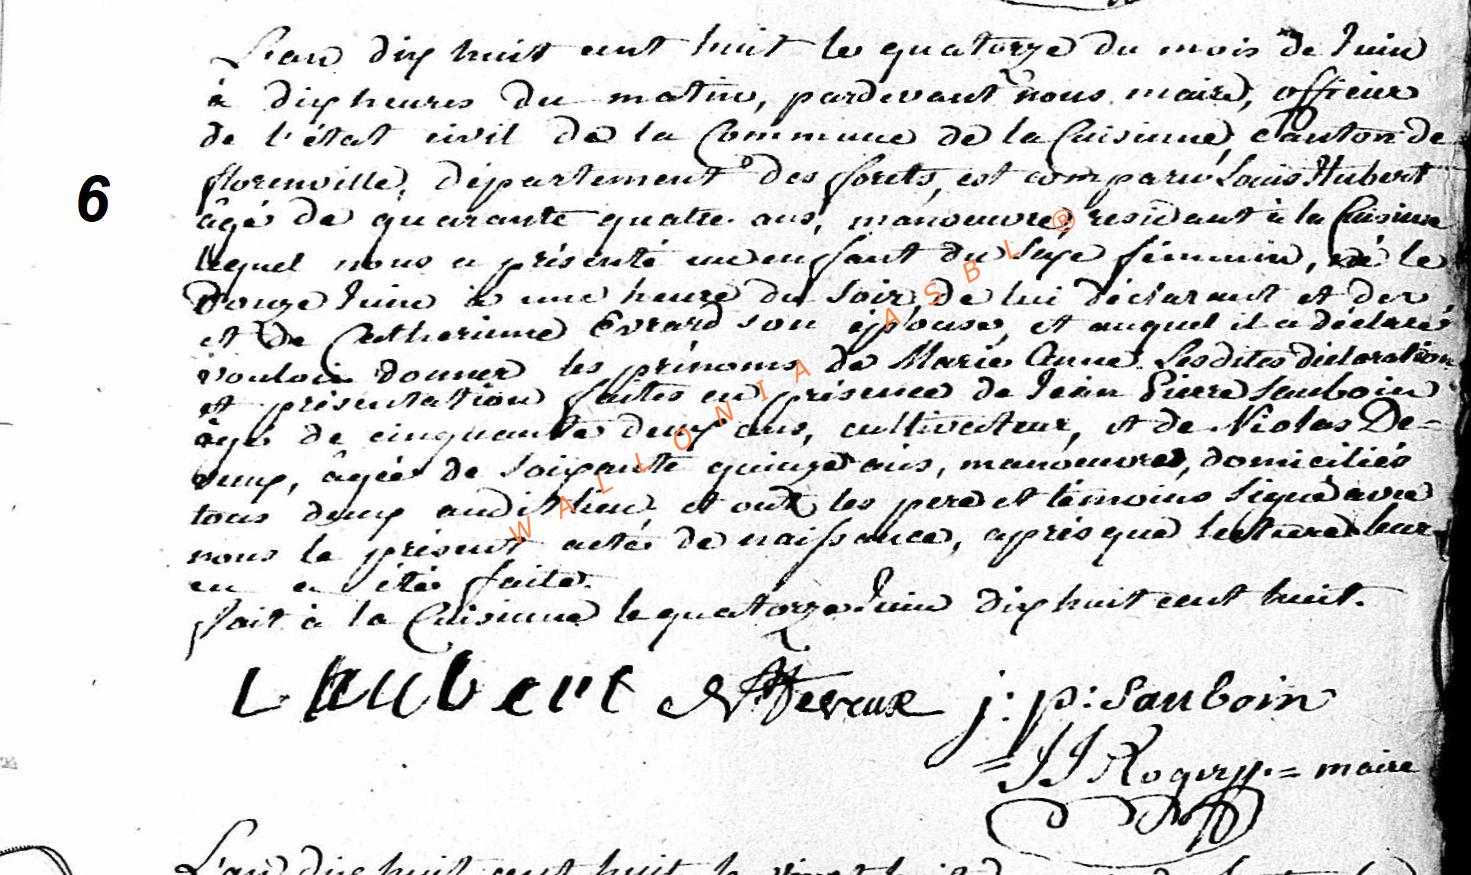 L'an dix huit cent huit le quatorze du mois de Juin
à dix heures du matin, pardevant nous maire, officier
de l'état civil de la Commune de la Cuisinne, Canton de
florenville, département des forêts, est comparu Louis Hubert
6
âgé de quarante quatre ans, manoeuvre, residant à la Cuisinne
lequel nous a présenté un enfant du Sexe féminin, né le
Douze Juin à une heure du Soir, de lui déclarant et de
et de Catherinne Evrard son épouse, et auquel il a déclaré
vouloir donner les prénoms de Marie Anne. Lesdites déclaration
et présentation faites en présence de Jean Pierre Sauboin
âgé de cinquante deux ans, cultivateur, et de Nicolas De=
âgé de soixante quinze ans, manoeuvre, domiciliés
tous deux audit lieu et ont les pere et témoins signé avec
nous le présent acte de naissance, après que lecture leur
en a été faite.
fait à la Cuisinne le quatorze Juin dix huit cent huit.
L hubert j: p: Sauboin
= JJ Rogery = maire
L'an dix huit cent huit le vingt
WALLONIA ASBL ®